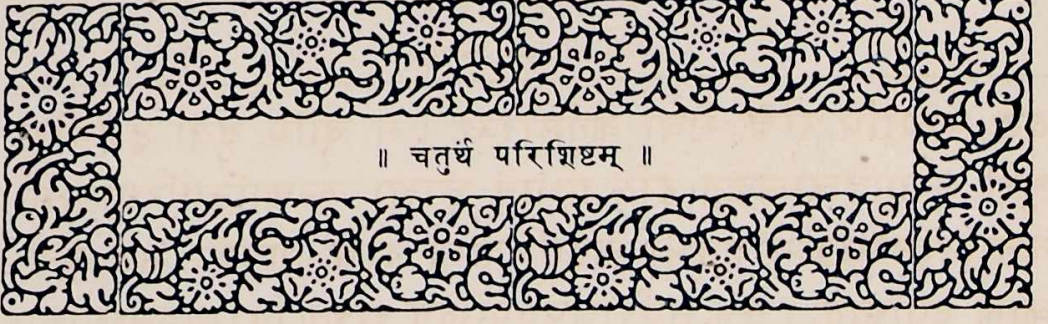 ॥ चतुर्थं परिशिष्टम् ॥